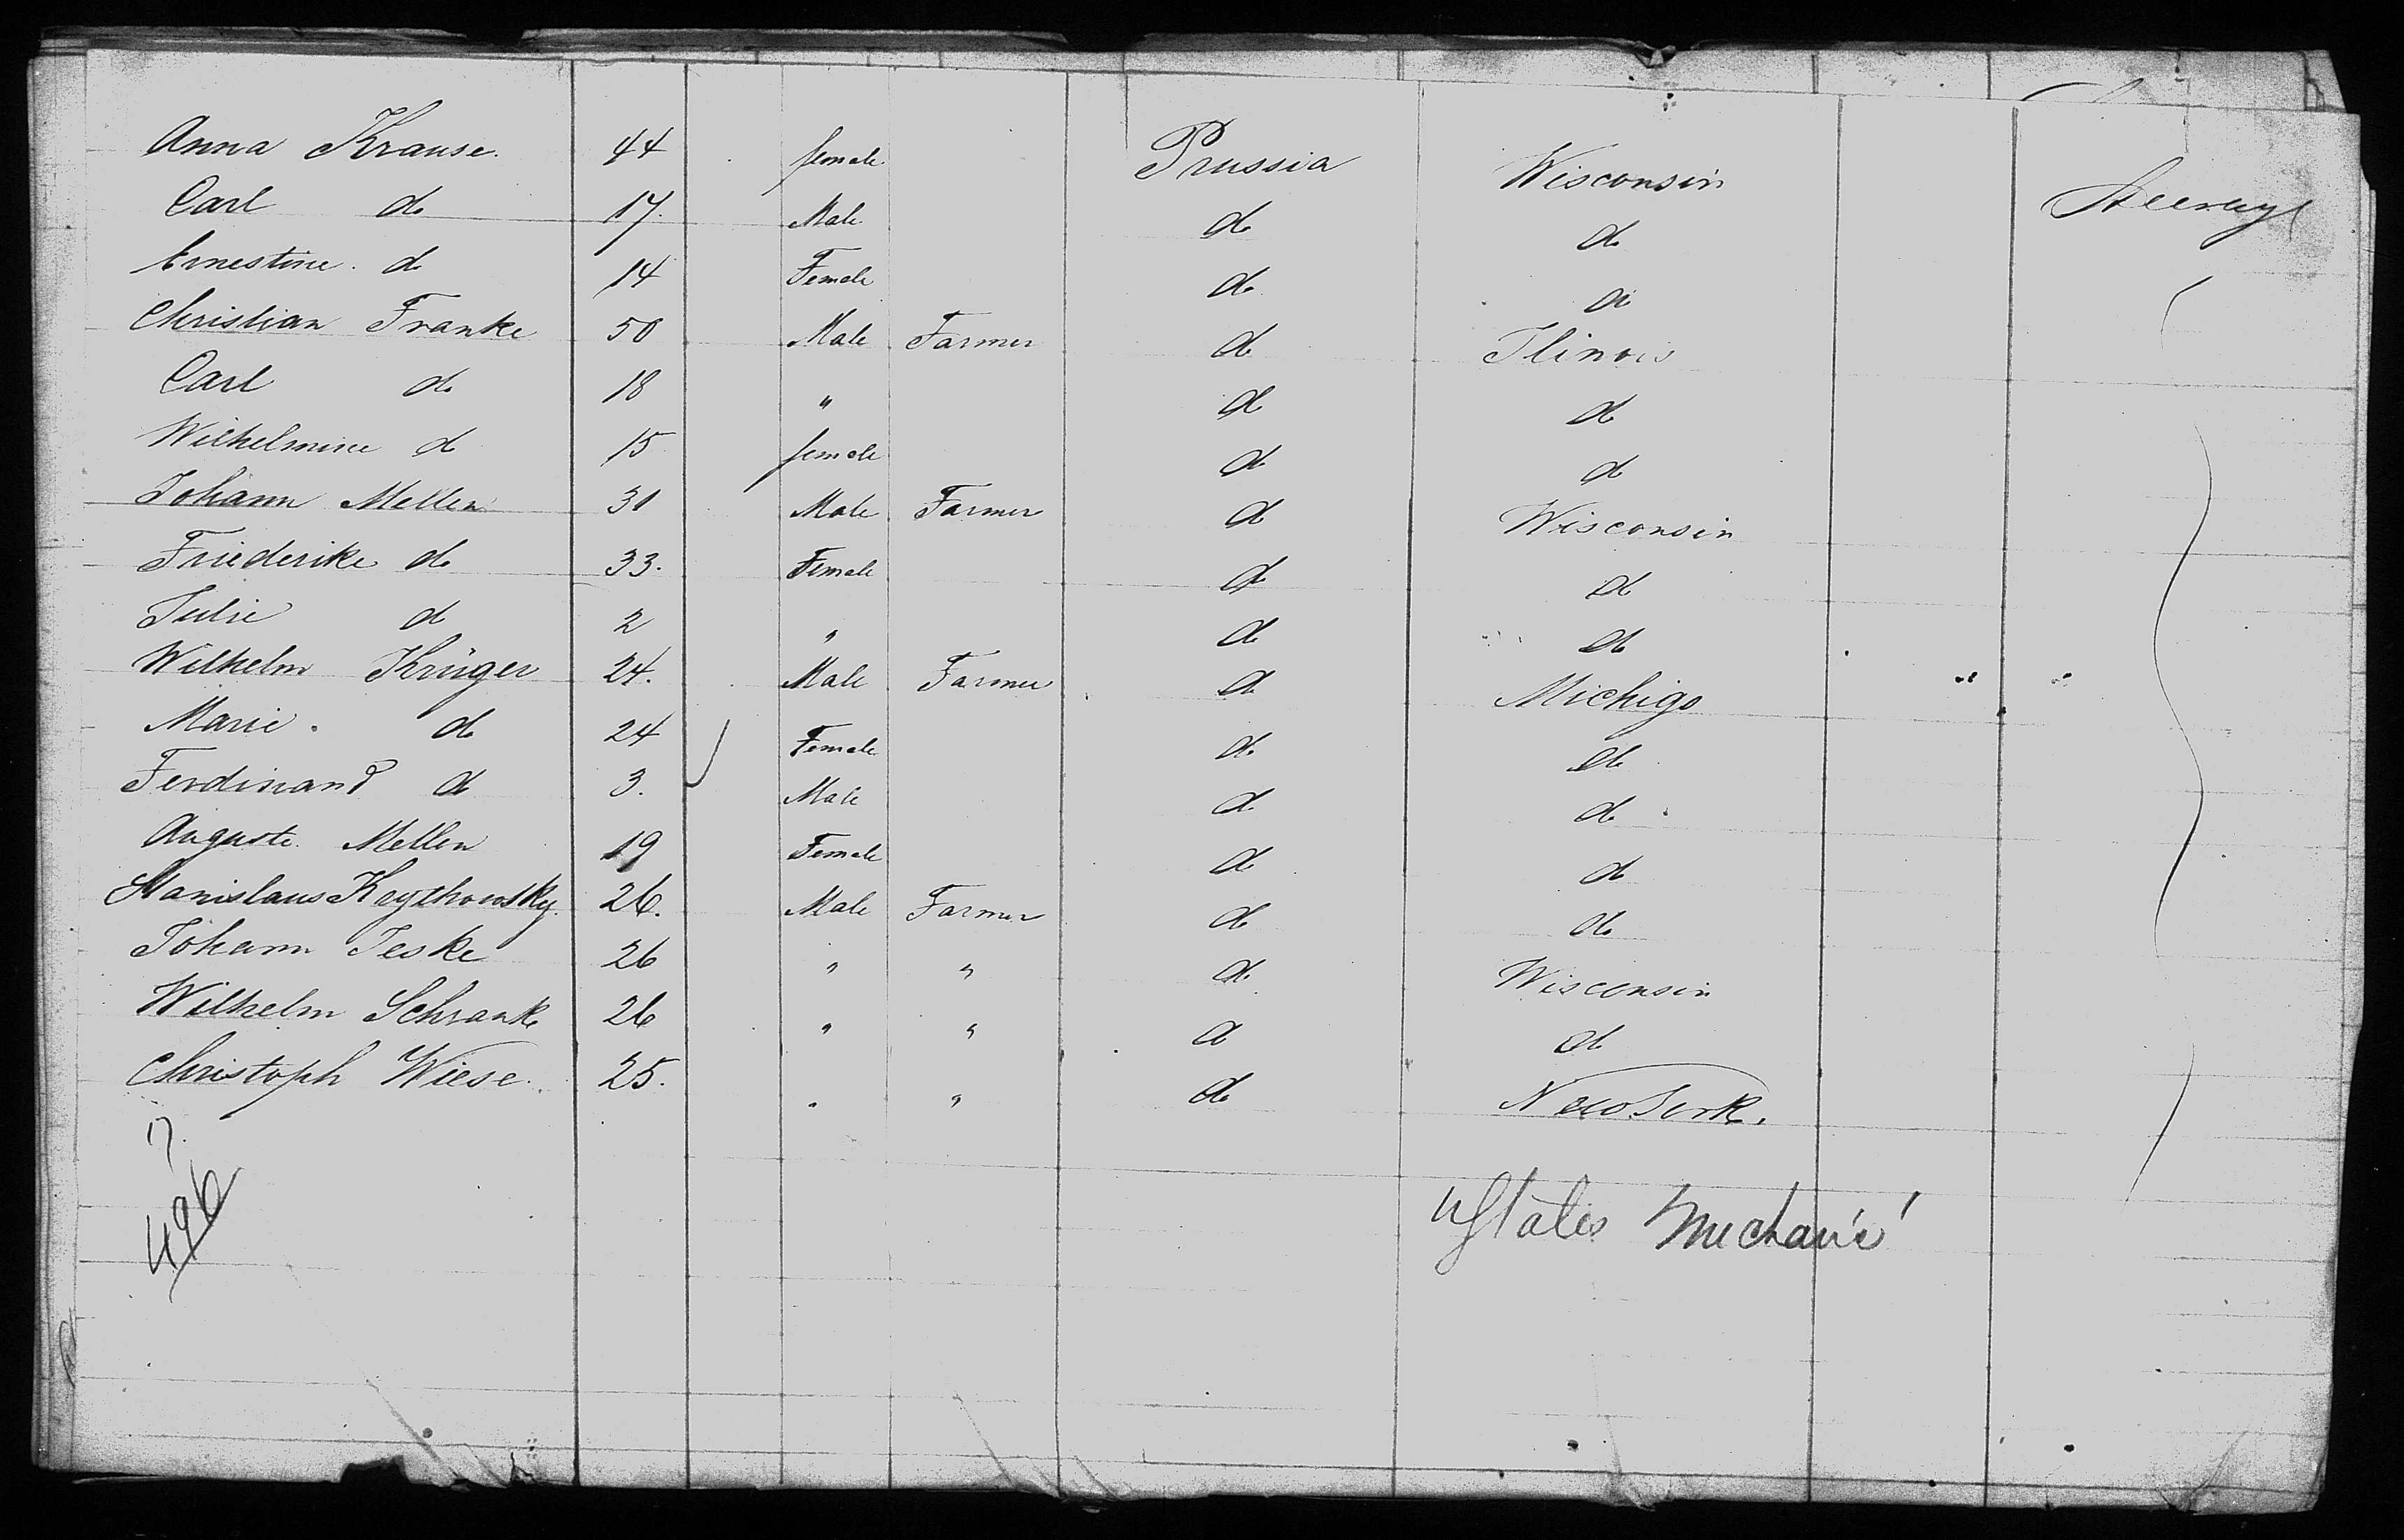 Anna Krause. 44 female Prussia Wisconsin
Carl do 17. Male do do
Ernestine. do 14 Female do do
Christian Franke 50 Male Farmer do Ilinois
Carl do 18 " do do
Wilhelmine do 15 female do do
Johann Mellen 31 Male Farmer do Wisconsin
Friederike do 33. Female do do
Julie do 2 " do do
Wilhelm Krüger 24. Male Farmer do Michigo
Marie. do 24 Female do do
Ferdinand do 3. Male do do
Auguste. Mellen 19 Female do do
Stanislaus 26. Male Farmer do do
Johann Jeske 26 " " do Wisconsin
Wilhelm Schrank 26 " " do do
Christoph Wiese. 25. " " do New York.
17.
496
UStates Mechanic